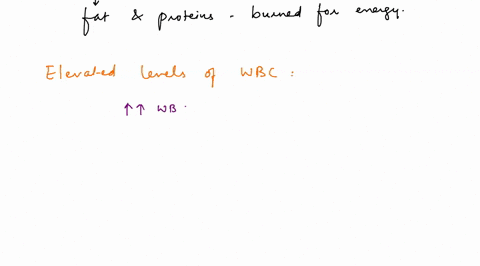 fat & proteins - burned for energy.
Elevated levels of WBC :
↑↑ WB